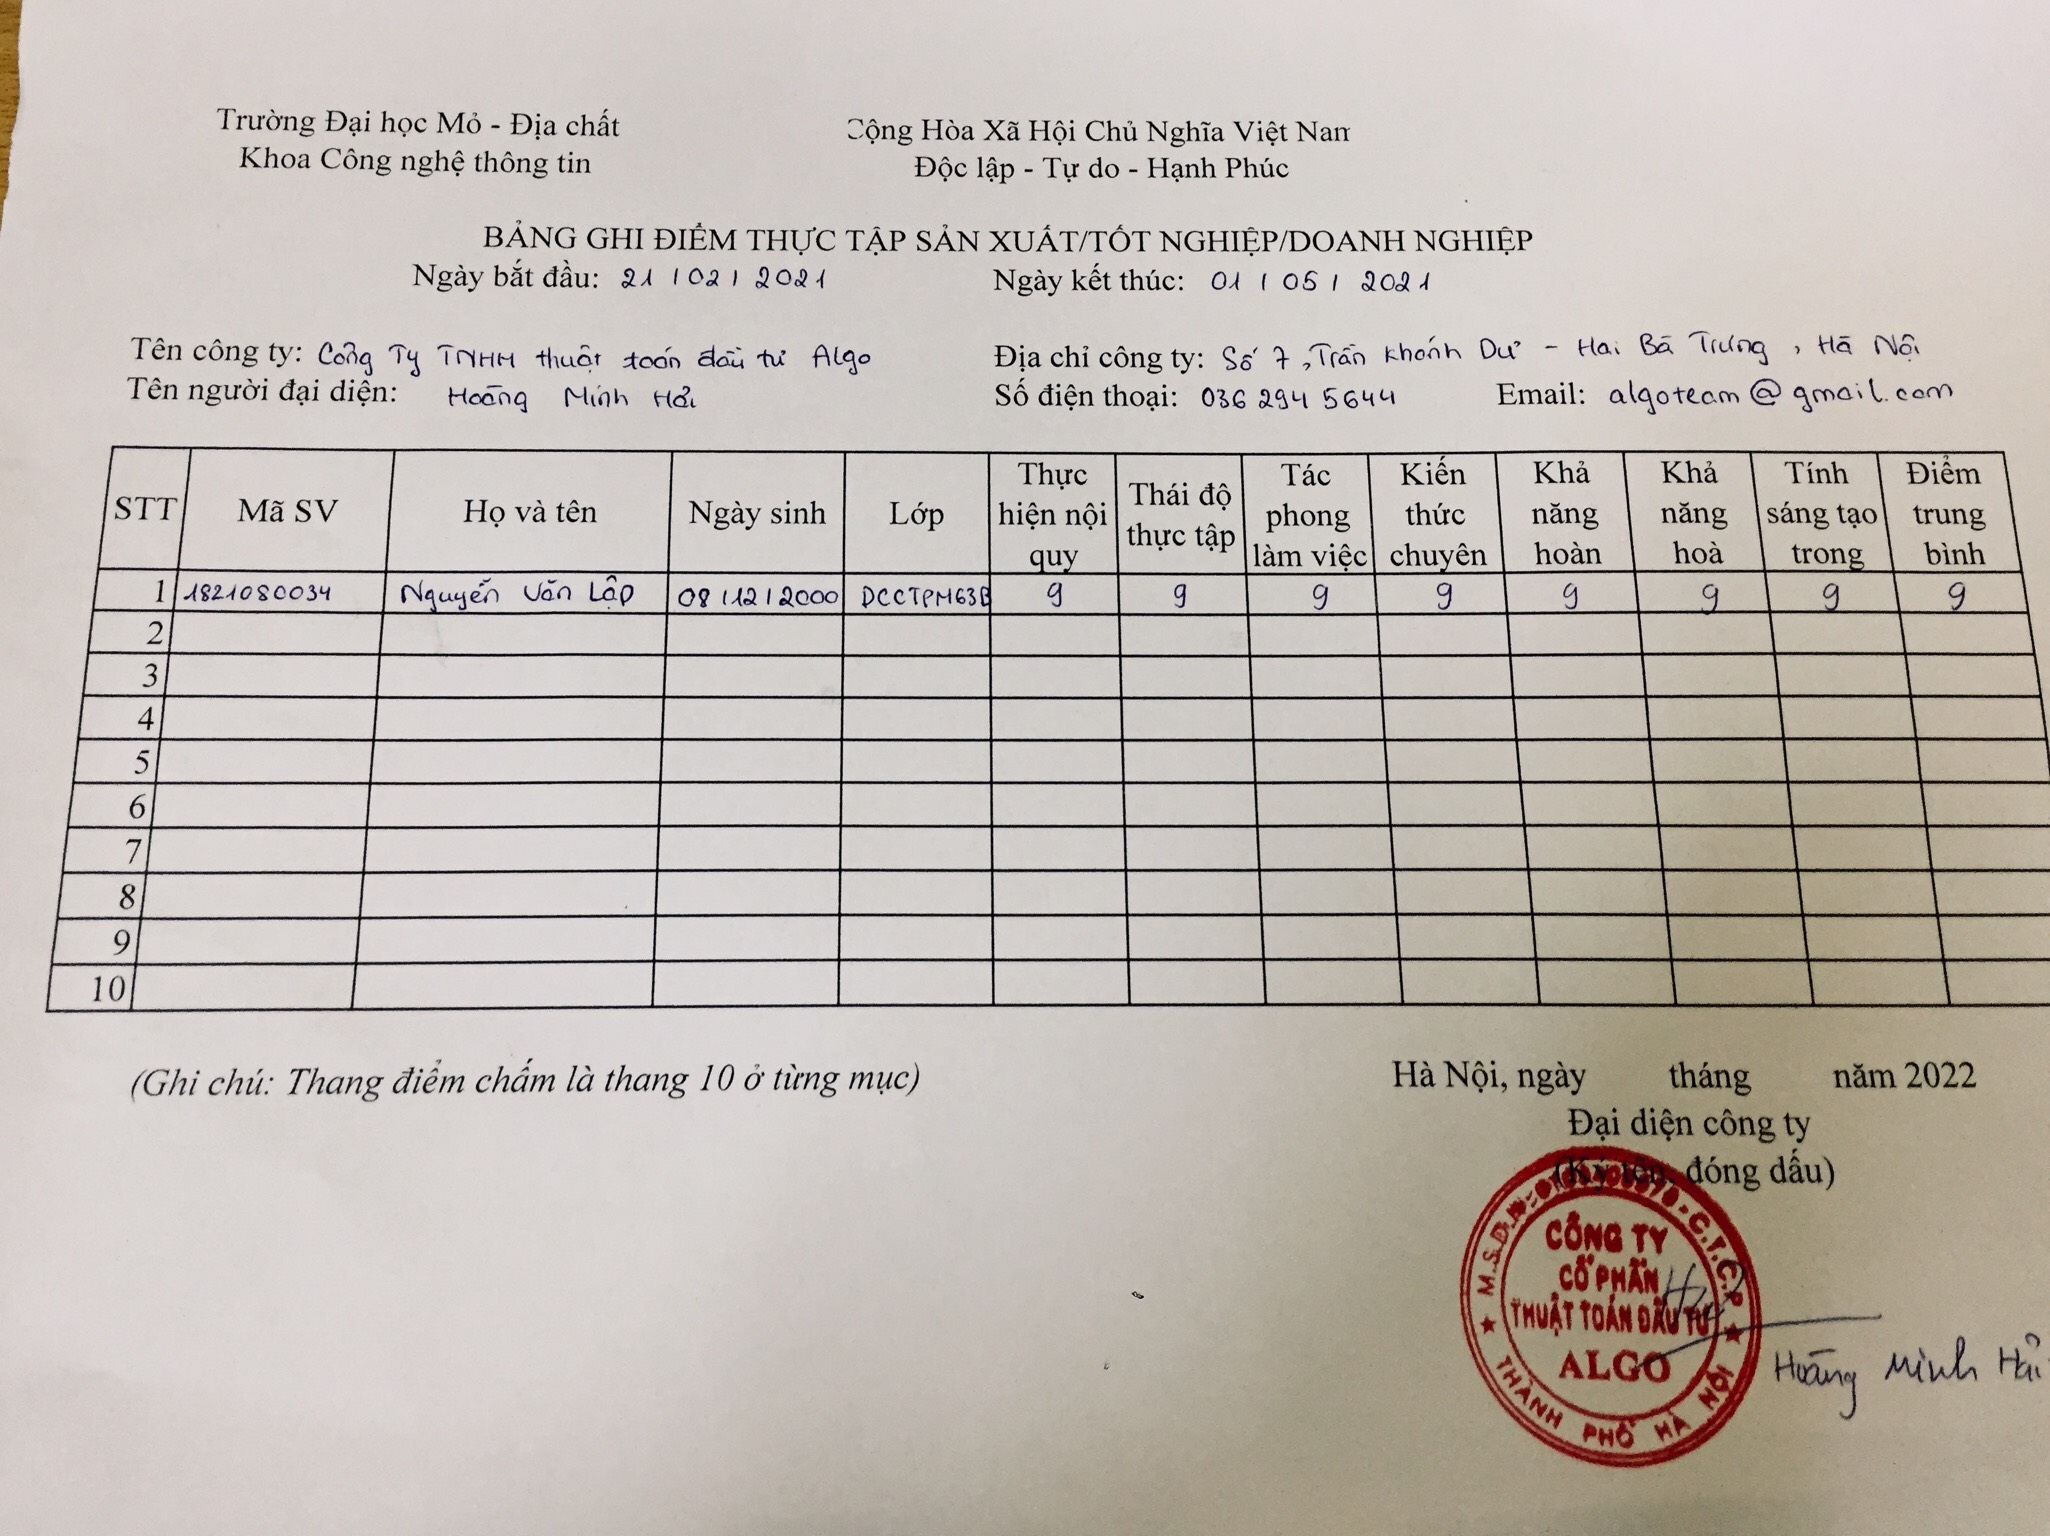 Trường Đại học Mỏ - Địa chất
Khoa Công nghệ thông tin
Cộng Hòa Xã Hội Chủ Nghĩa Việt Nam
Độc lập - Tự do - Hạnh Phúc
BẢNG GHI ĐIỂM THỰC TẬP SẢN XUẤT/TỐT NGHIỆP/DOANH NGHIỆP
Ngày bắt đầu: 21/02/2021 Ngày kết thúc: 01/05/2021
Tên công ty: Công Ty TNHH thuật toán đầu tư Algo Địa chỉ công ty: Số 7, Trần Khánh Dư - Hai Bà Trưng, Hà Nội
Tên người đại diện: Hoàng Minh Hải Số điện thoại: 036 294 5644 Email: algoteam@gmail.com
STT Mã SV Họ và tên Ngày sinh Lớp Thực hiện nội quy Thái độ thực tập Tác phong làm việc Kiến thức chuyên Khả năng hoàn Khả năng hoà Tính sáng tạo trong Điểm trung bình
1 1821080034 Nguyễn Văn Lập 08/12/2000 DCCTPM63B 9 9 9 9 9 9 9 9
2
3
4
5
6
7
8
9
10
(Ghi chú: Thang điểm chấm là thang 10 ở từng mục)
Hà Nội, ngày tháng năm 2022
Đại diện công ty
(Ký tên, đóng dấu)
M.S.D.N: - C.T.C.P
CÔNG TY
CỔ PHẦN
THUẬT TOÁN ĐẦU TƯ
ALGO
★ THÀNH PHỐ HÀ NỘI ★
Hoàng Minh Hải